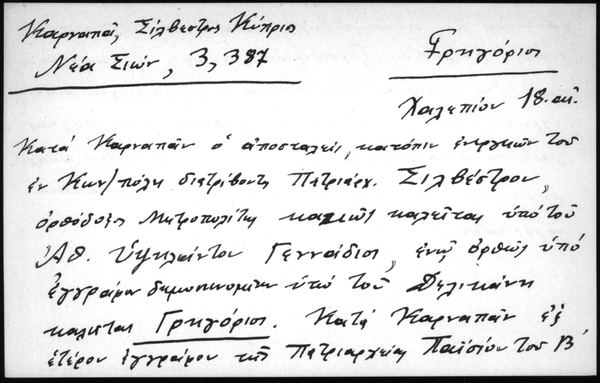 Καρναπᾶ, Σίλβεστρος Κύπριος
Νέα Σιών, 3, 387
Γρηγόριος
Χαλεπίου 18. αἰ.
Κατά Καρναπᾶν ὁ ἀποσταλείς, κατόπιν ἐνεργειῶν τοῦ
ἐν Κων/πόλει διατρίβοντος Πατριάρχ. Σιλβέστρου,
ὀρθόδοξος Μητροπολίτης κακῶς καλεῖται ὑπό τοῦ
Ἀθ. Ὑψηλάντου Γεννάδιος, ἐνῷ ὀρθῶς ὑπό
ἐγγράφου δημοσιευομένου ὑπό τοῦ Δελικάνη
καλεῖται Γρηγόριος. Κατά Καρναπᾶν ἐξ
ἑτέρου ἐγγράφου τῆς Πατριαρχείας Παϊσίου τοῦ Β΄